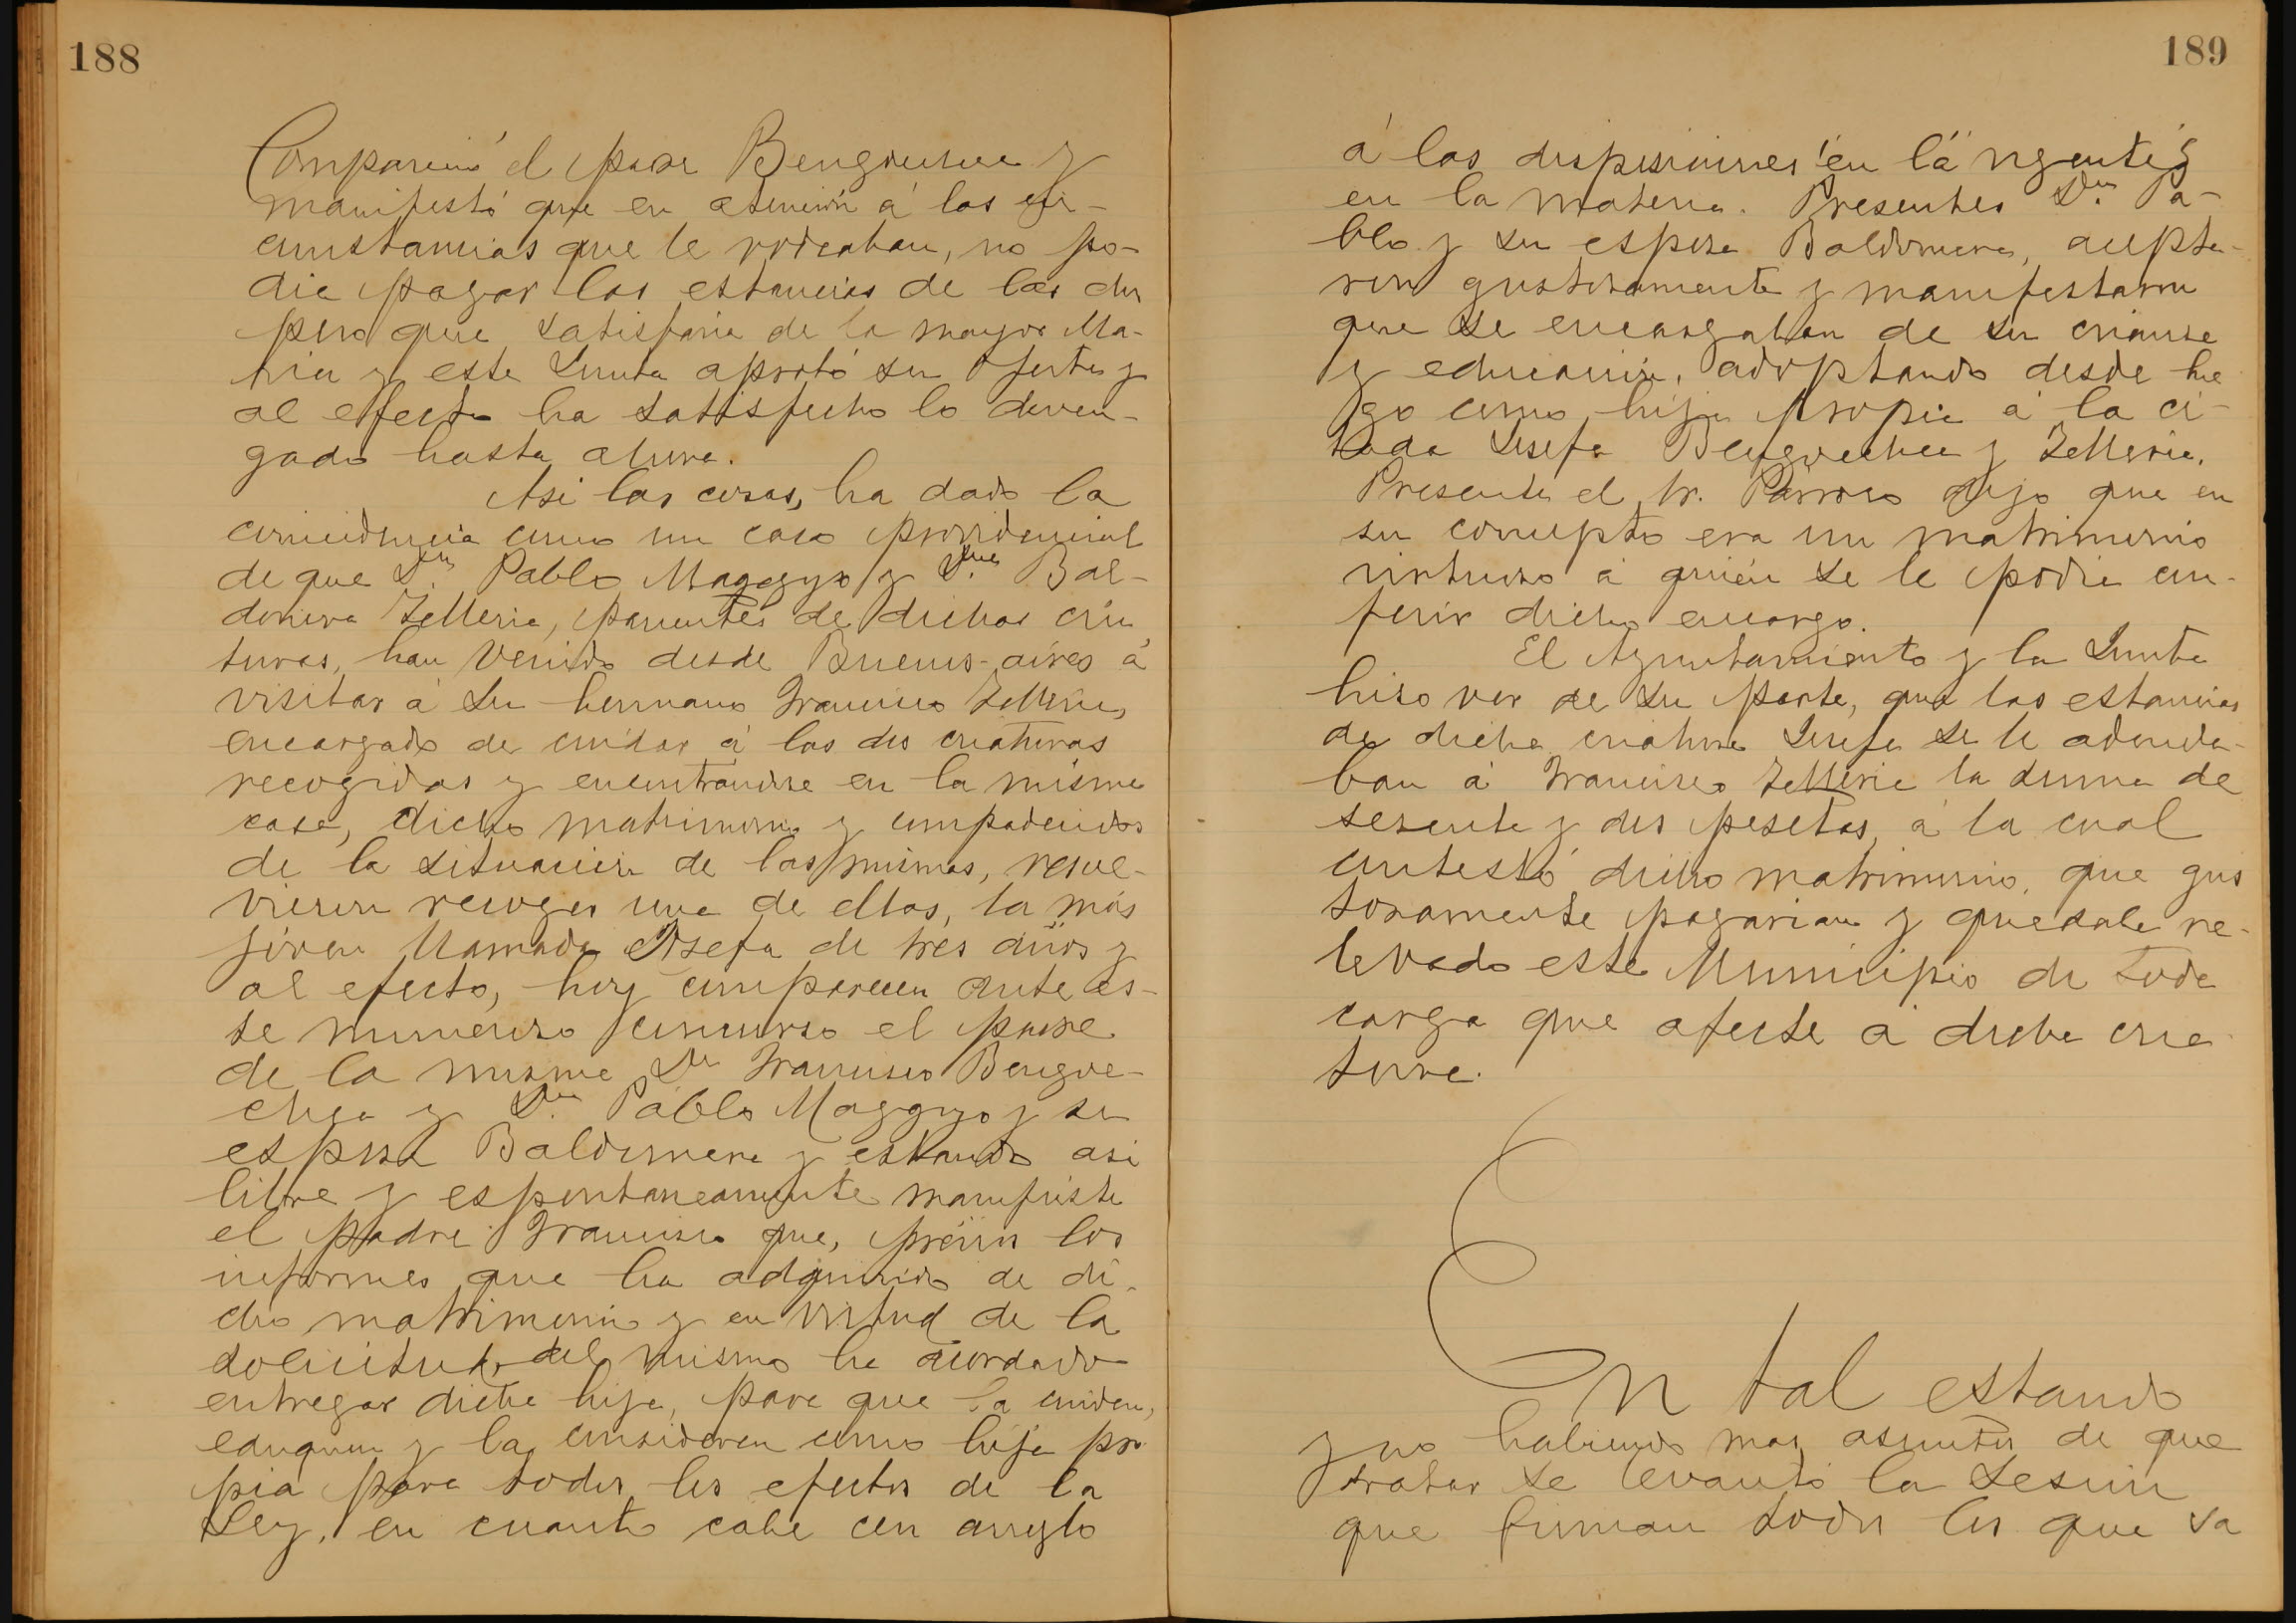 188
Compareció el padre Bengoechea y
manifestó que en atención á las cir-
cunstancias que le rodeaban, no po-
dia pagar las estancias de las dos
pero que satisfaria de la mayor Ma-
ria y esta Junta aprobó su oferta y
al efecto ha satisfecho lo deven-
gado hasta ahora.
Asi las cosas, ha dado la
coincidencia como un caso providencial
de que Dn. Pablo Maggyo y Dña. Bal-
domera Telleria, parientes de dichas cria
turas, han venido desde Buenos-aires á
visitar á su hermano Francisco Telleria,
encargado de cuidar á las dos criaturas
recogidas y encontrandose en la misma
casa, dicho matrimonio y compadecidos
de la situación de las mismas, resol-
vieron recoger una de ellas, la más
jóven llamada Josefa de tres años y
al efecto, hoy comparecen ante es-
te numeroso concurso el padre
de la misma Dn Francisco Bengoe-
chea y Dn. Pablo Maggyo y su
esposa Baldomera y estando asi
libre y espontaneamente manifiesta
el padre Francisco que, prévios los
informes que ha adquirido de di-
cho matrimonio y en virtud de la
solicitud del mismo ha acordado
entregar dicha hija, para que la cuiden,
eduquen y la consideren como hija pro
pia para todos los efectos de la
Ley, en cuanto cabe con arreglo
189
á las disposiciones en la vigentes
en la materia. Presentes Dn. Pa-
blo y su esposa Baldomera, acepta-
ron gustosamente y manifestaron
que se encargaban de su crianza
y educación, adoptando desde lue
go como hija propia á la ci-
tada Josefa Bengoechea y Telleria.
Presente el Sr. Parroco dijo que en
su concepto era un matrimonio
virtuoso á quién se le podia con-
ferir dicho encargo.
El Ayuntamiento y la Junta
hizo ver de su parte, que las estancias
de dicha criatura Josefa se le adeuda-
ban á Francisco Telleria la suma de
sesenta y dos pesetas, á la cual
contestó dicho matrimonio, que gus
tosamente pagarian y quedaba re-
levado este Municipio de toda
carga que afecte á dicha cria
tura.
En tal estando
y no habiendo mas asuntos de que
tratar se levantó la sesión
que firman todos los que sa